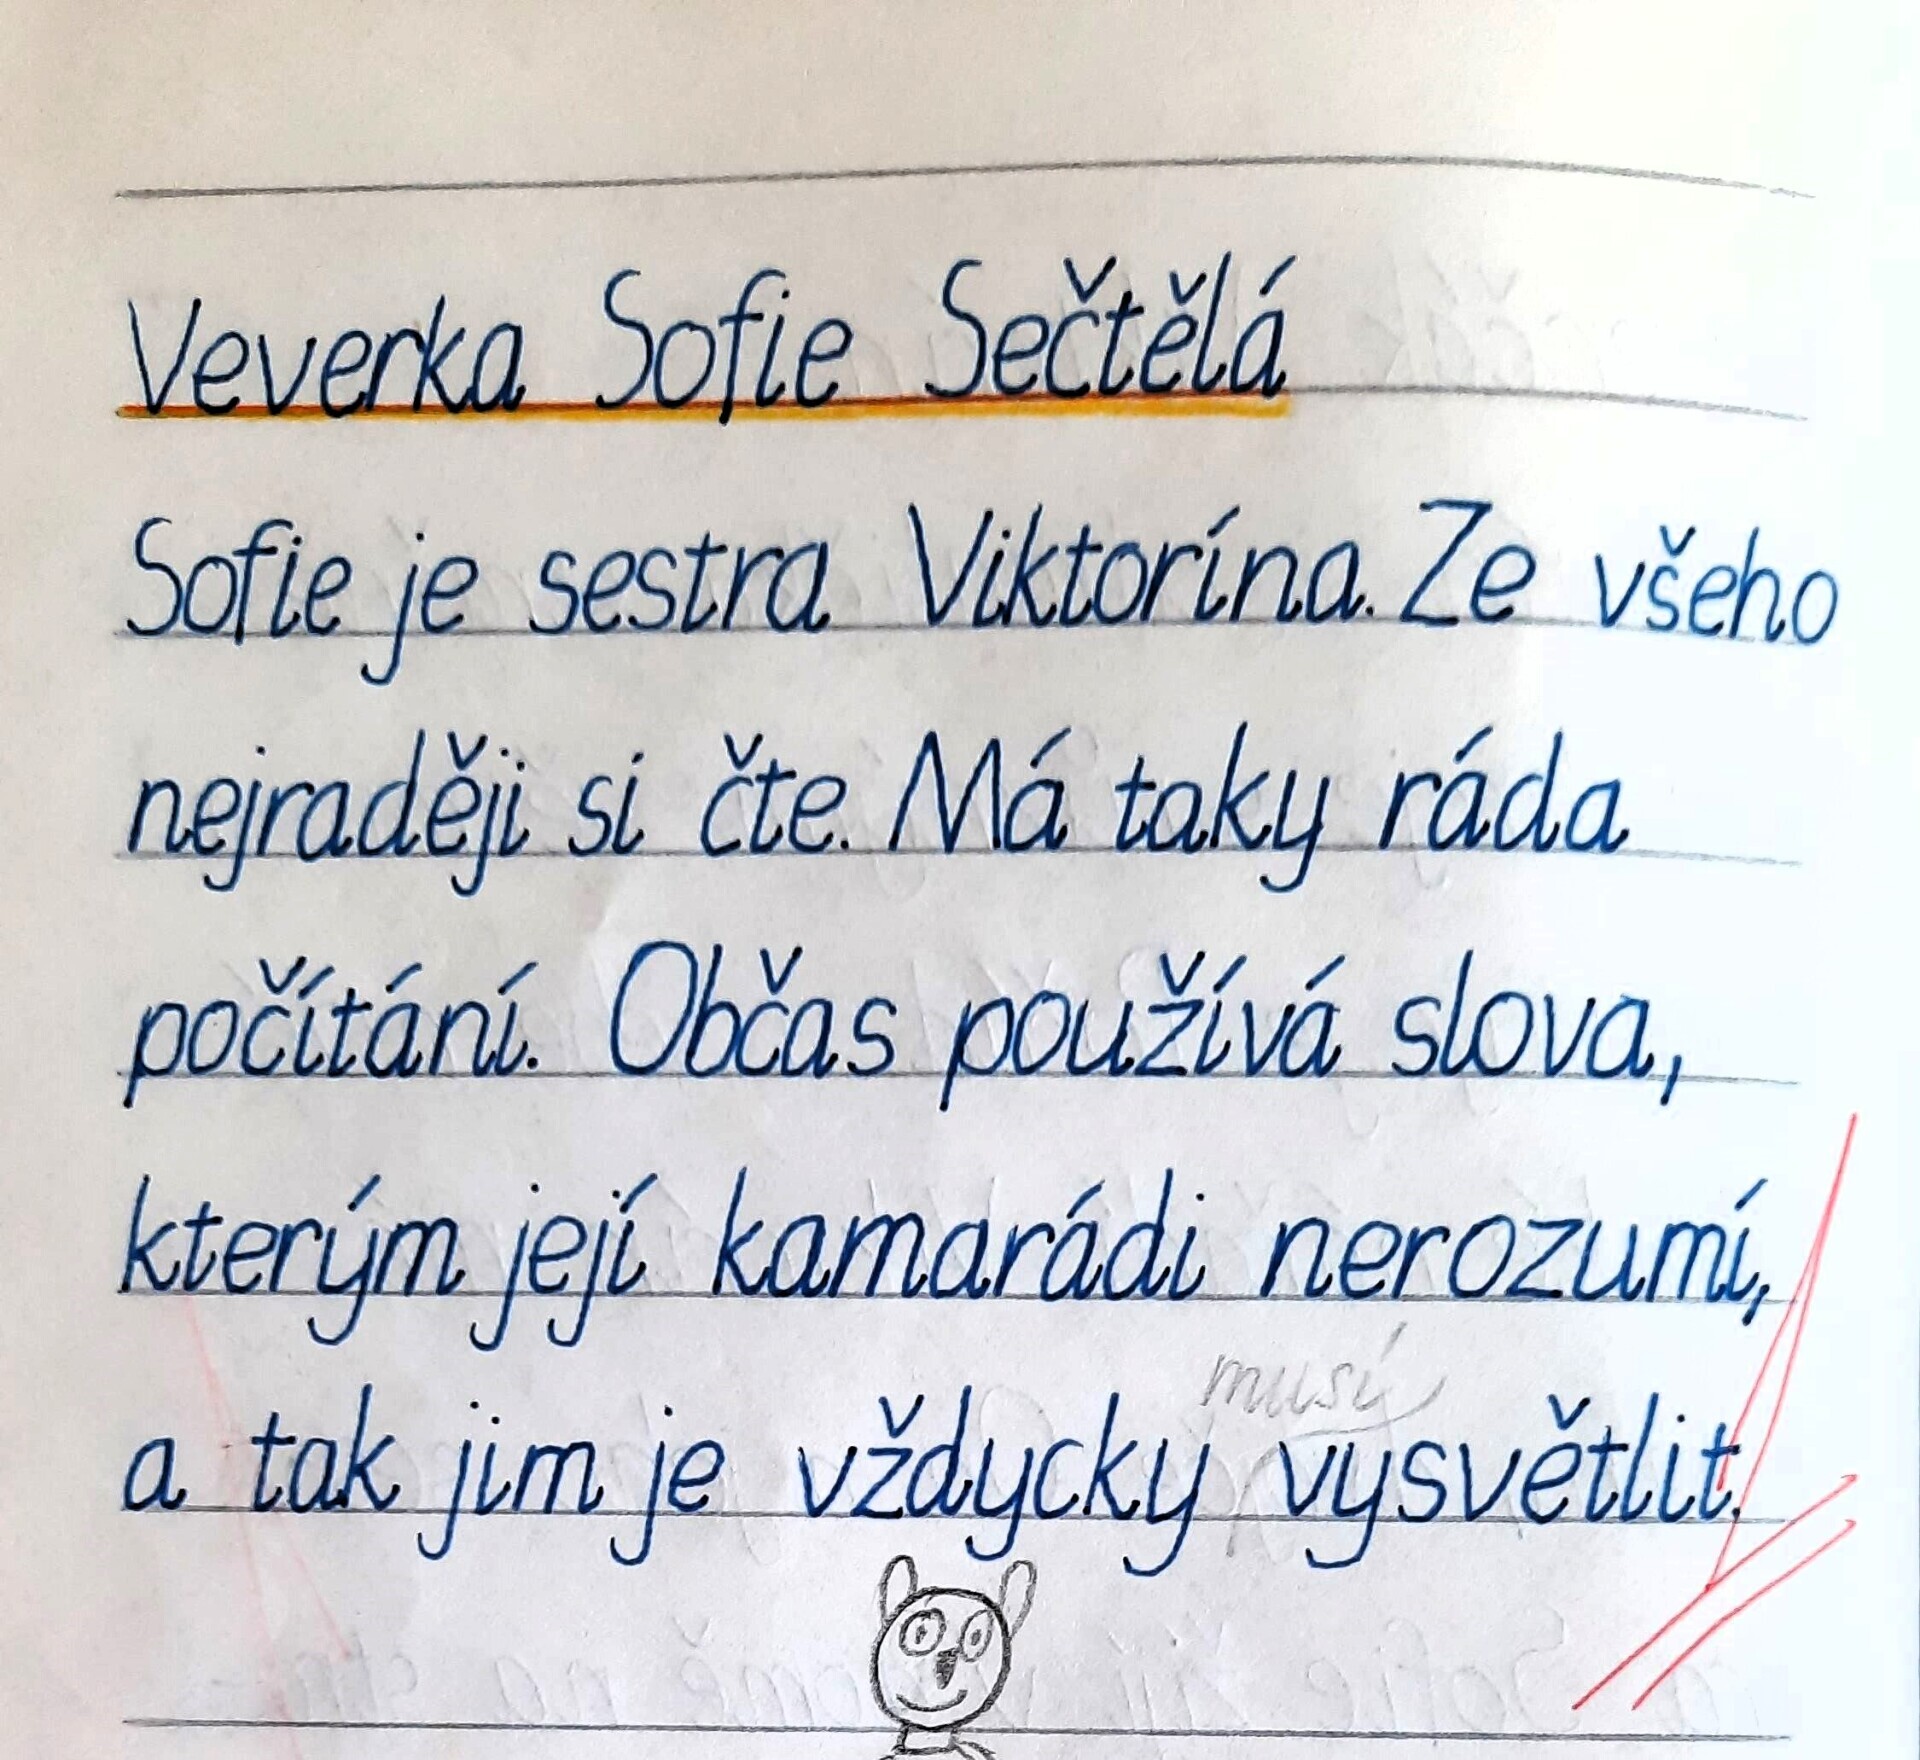 Veverka Sofie Sečtělá
Sofie je sestra Viktorína. Ze všeho
nejraději si čte. Má taky ráda
počítání. Občas používá slova,
kterým její kamarádi nerozumí,
musí
a tak jim je vždycky vysvětlit.